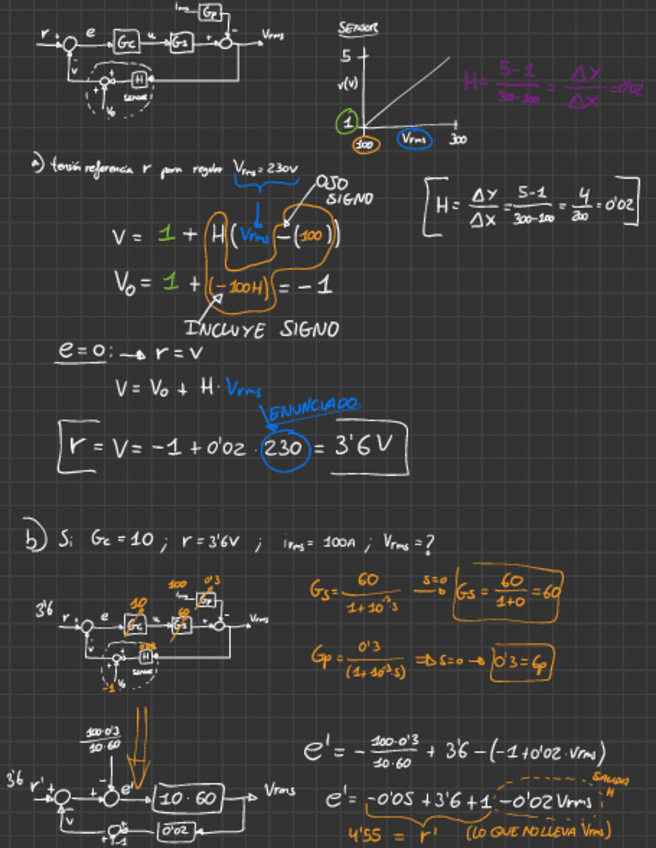 irms Gp
r + e Gc u Gs + - Vrms
v - + H
+ SENSOR
V₀
SENSOR
5
v(V)
1
100 Vrms 300
H = 5-1/300-100 = ΔY/ΔX = 0'02
a) tensión referencia r para regular Vrms = 230V
OJO SIGNO
[H = ΔY/ΔX = 5-1/300-100 = 4/200 = 0'02]
V = 1 + H(Vrms - (100))
V₀ = 1 + (-100H) = -1
INCLUYE SIGNO
e=0: → r = v
V = V₀ + H·Vrms
ENUNCIADO
[r = V = -1 + 0'02 · 230 = 3'6V]
b) Si Gc = 10 ; r = 3'6V ; irms = 100A ; Vrms = ?
100 0'3
irms Gp
3'6 10 60
r + e Gc u Gs + - Vrms
v - + H
SENSOR
-1 V₀
Gs = 60/1+10⁻³s s=0 → Gs = 60/1+0 = 60
Gp = 0'3/(1+10⁻³s) ⇒ s=0 → 0'3 = Gp
100·0'3/10·60
3'6 r' + - + e' 10·60 Vrms
v + -1 0'02
e' = - 100·0'3/10·60 + 3'6 - (-1+0'02·Vrms)
SALIDA
H
e' = -0'05 + 3'6 + 1 - 0'02 Vrms
4'55 = r' (LO QUE NO LLEVA Vrms)